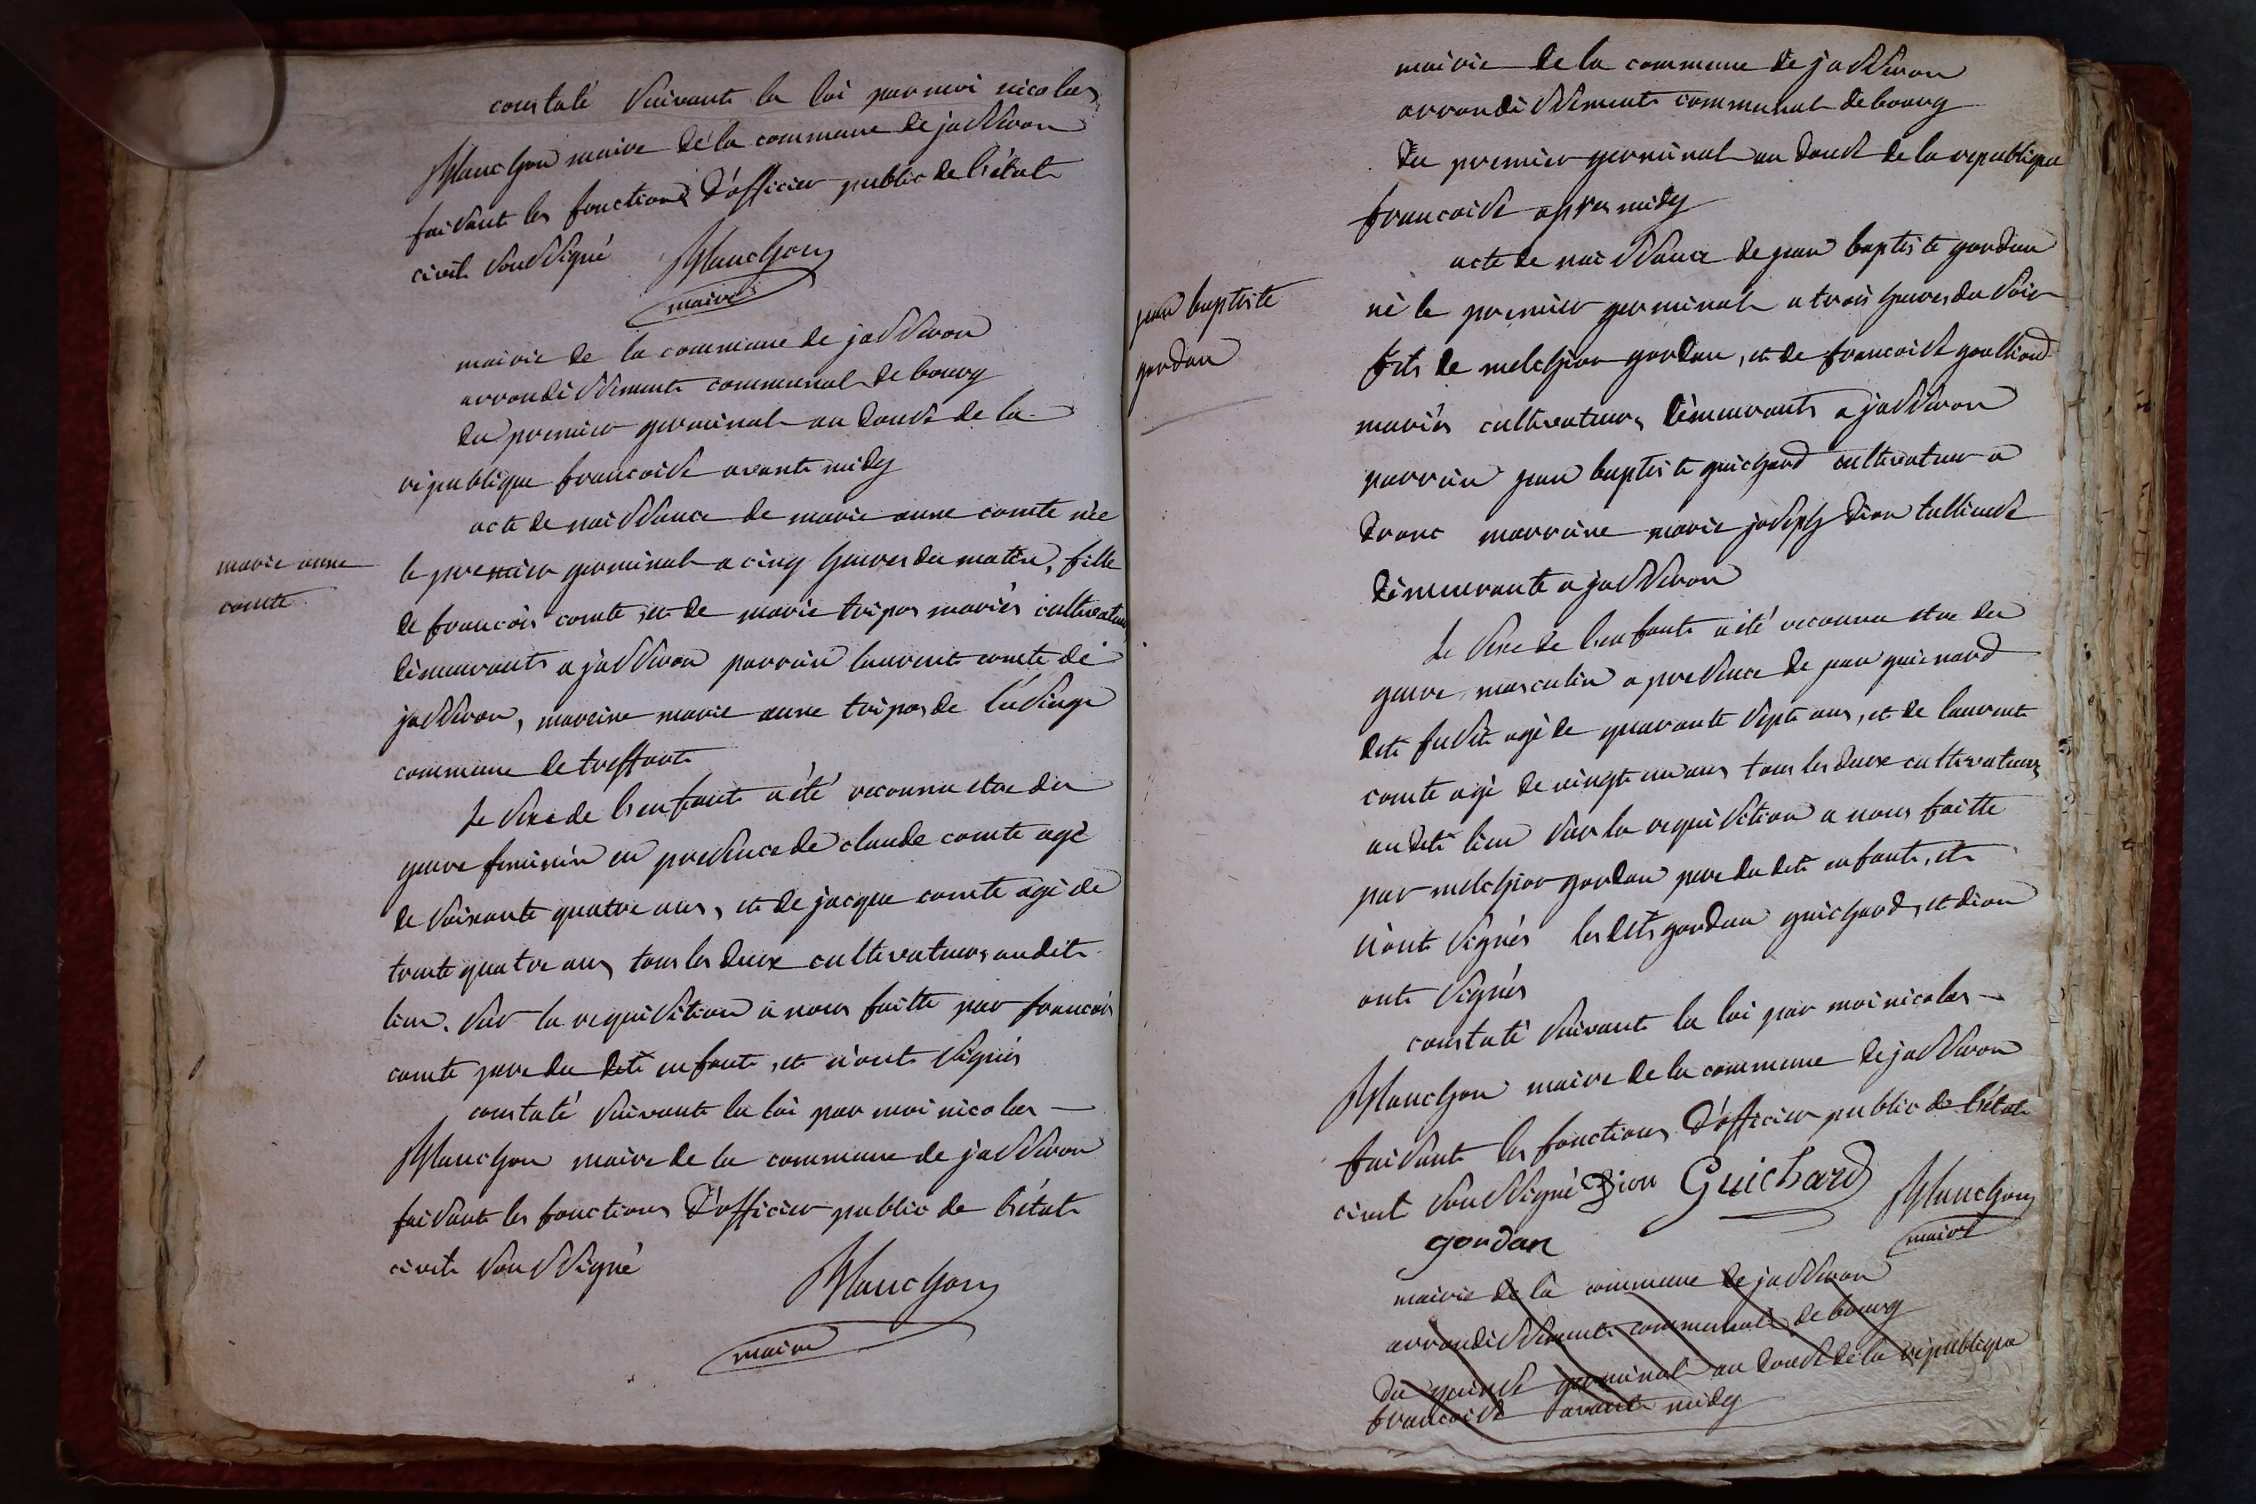 constaté suivant la loi par moi nicolas
Planchon maire de la commune de jasseron
faisant les fonctions d'officier public de l'état
civil soussigné Planchon
maire
mairie de la commune de jasseron
arrondissement communal de bourg
du premier germinal an douse de la
république francoise avant midy
acte de naissance de marie anne comte née
marie anne
comte
le premier germinal a cinq heures du matin, fille
de francois comte, et de marie tripos mariés cultivateurs
démeurants a jasseron parrain laurent comte de
jasseron, mareine marie anne tripos de lusinge
commune de treffort
Le sexe de l'enfant a été reconnu etre du
genre feminin en presence de claude comte agé
de soixante quatre ans, et de jacque comte agé de
trente quatre ans tous les deux cultivateurs audit
lieu. sur la requisition a nous faitte par francois
comte pere du dit enfant, et n'ont signés
constaté suivant la loi par moi nicolas
Planchon maire de la commune de jasseron
faisant les fonctions d'officier public de l'état
civil soussigné
Planchon
maire
mairie de la commune de jasseron
arrondissement communal de bourg
Du premier germinal an douse de la republique
francoise apres midy
acte de naissance de jean baptiste gordan
jean baptiste
gordan
né le premier germinal a trois heures du soir
fils de melchior gordan, et de francoise
mariés cultivateurs démeurants a jasseron
parrain jean baptiste guichard cultivateur a
drom marraine marie joseph dion
démeurante a jasseron
Le sexe de l'enfant a été reconnu etre du
genre masculin a presence de jean guinard
dit agé de quarante sept ans, et de laurent
comte agé de vingt un ans tous les deux cultivateurs
audit lieu sur la requisition a nous faitte
par melchior gordan pere du dit enfant, et
n'ont signés les dits gordan guichard, et dion
ont signés
constaté suivant la loi par moi nicolas
Planchon maire de la commune de jasseron
faisant les fonctions d'officier public de l'état
civil soussigné Dion Guichard Planchon
gordan maire
mairie de la commune de jasseron
arrondissement communal de bourg
Du germinal an douse de la république
francoise avant midy